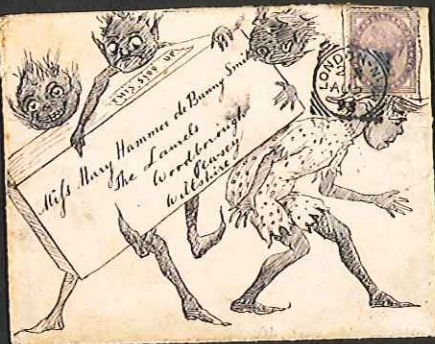 THIS SIDE UP
Miss Mary Hammer de Bunny Smith
The Laurels
Woodborough
Pewsey
Wiltshire
LONDON.N.
AU
93